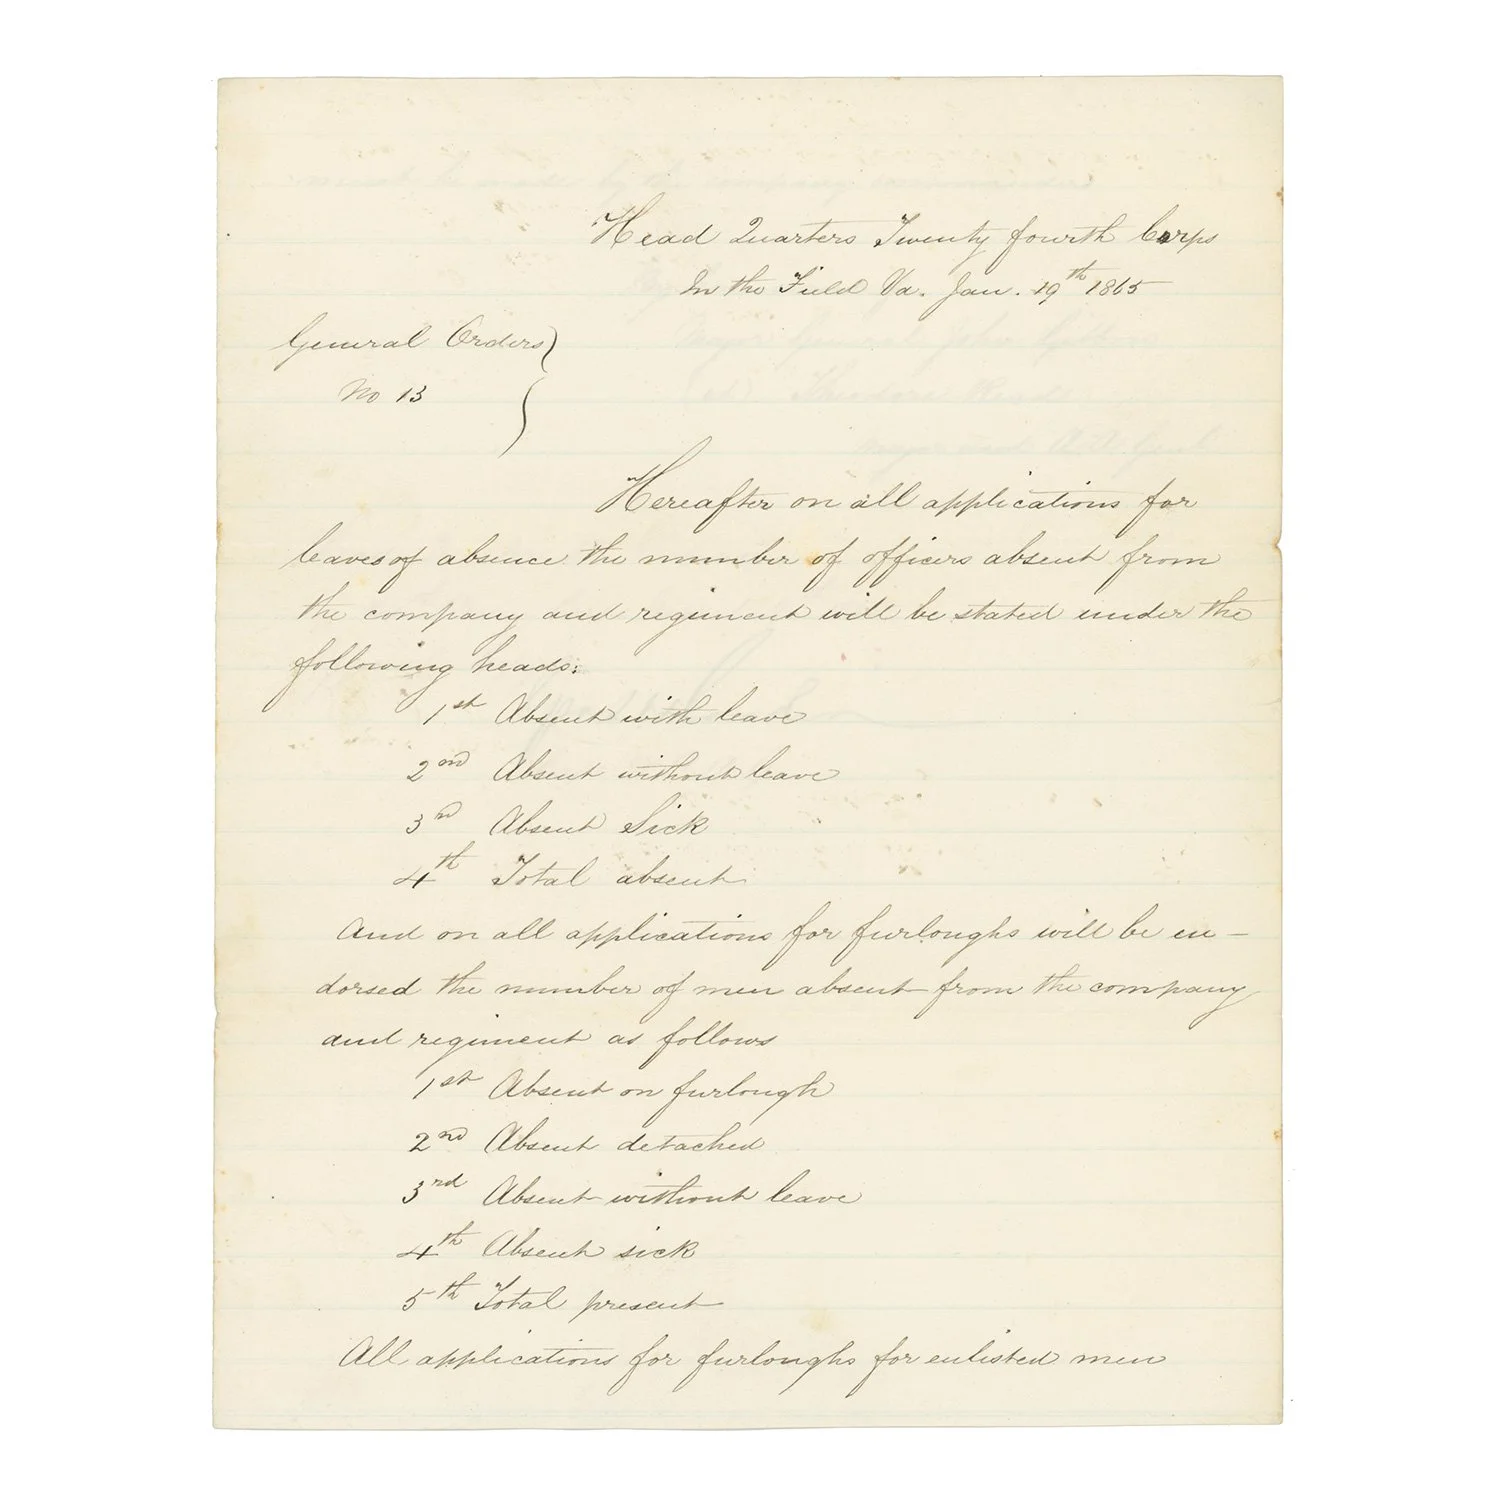 Head Quarters Twenty fourth Corps
In the Field Va. Jan. 19th 1865
General Orders
No 13
Hereafter on all applications for
leaves of absence the number of officers absent from
the company and regiment will be stated under the
following heads:
1st Absent with leave
2nd Absent without leave
3rd Absent Sick
4th Total absent
And on all applications for furloughs will be en-
dorsed the number of men absent from the company
and regiment as follows
1st Absent on furlough
2nd Absent detached
3rd Absent without leave
4th Absent sick
5th Total present
All applications for furloughs for enlisted men